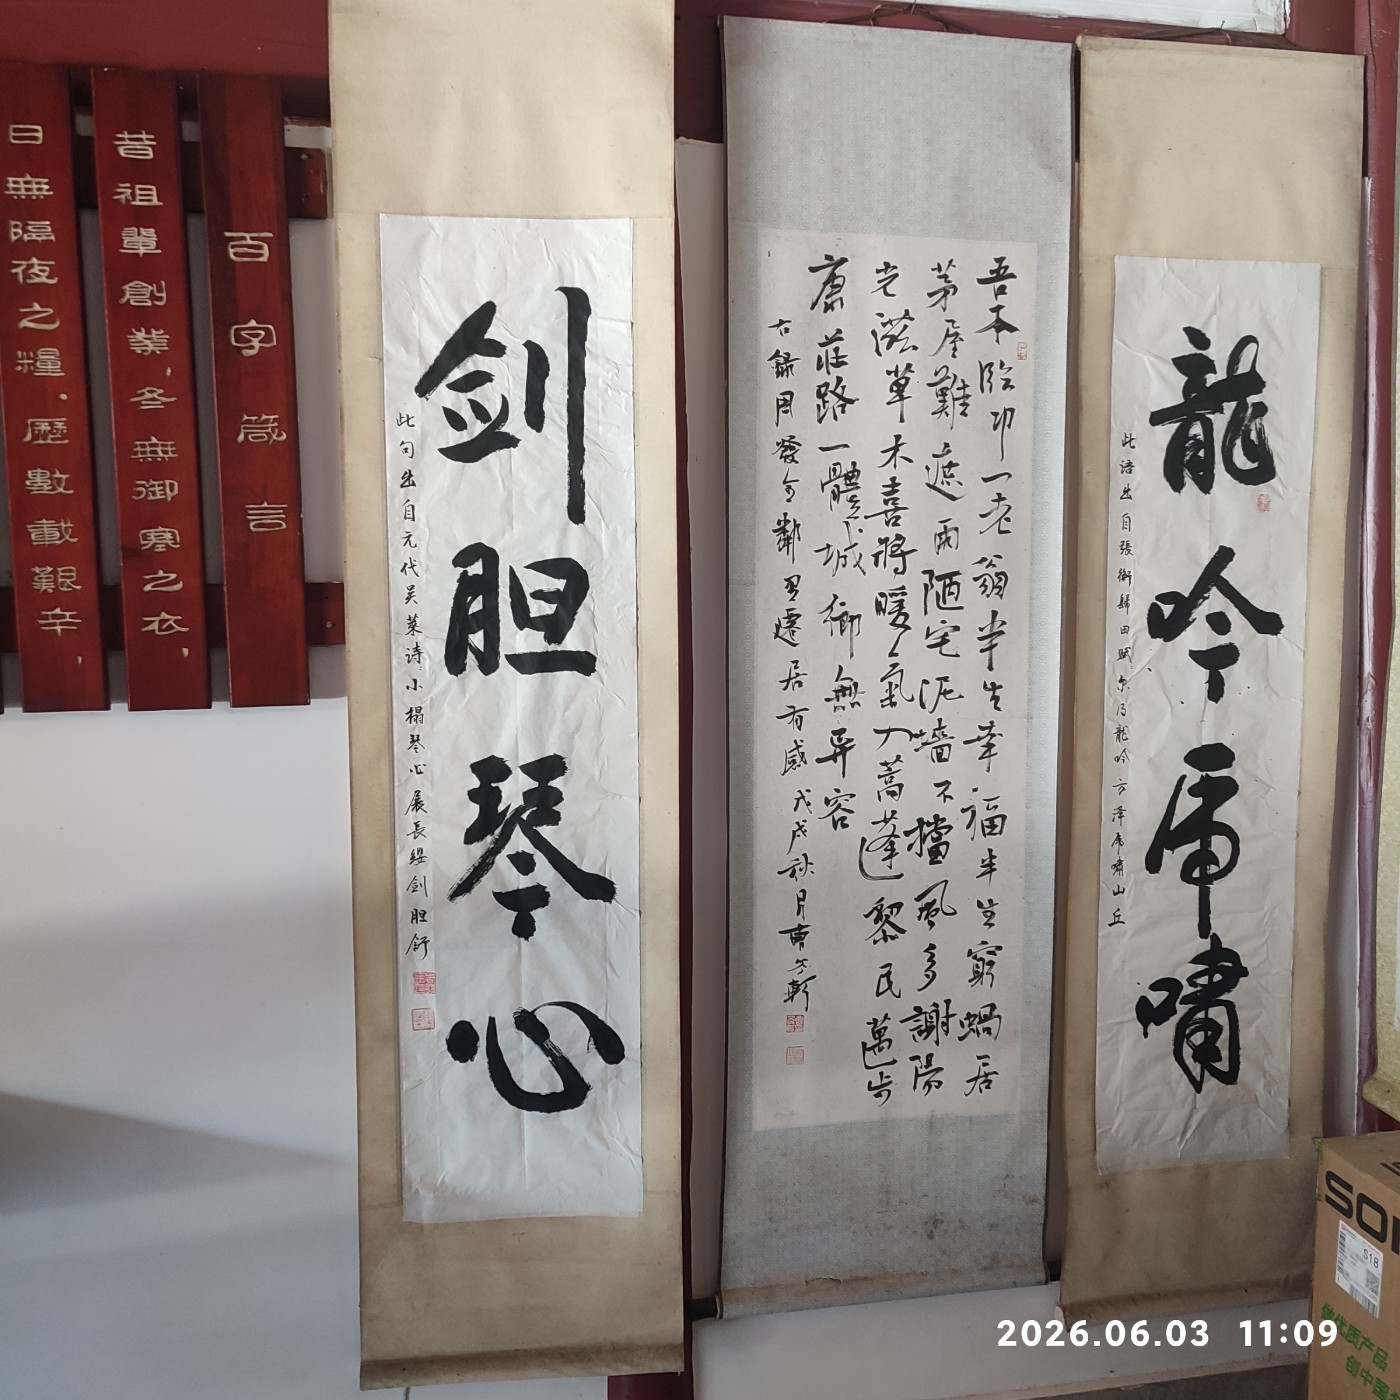 百字箴言
昔祖輩創業，冬無御寒之衣，
日無隔夜之糧．歷數載艱辛，
剑胆琴心
此句出自元代吴莱诗小榻琴心展長纓剑胆舒
吾本臨邛一老翁半生幸福半生窮蝸居
茅屋難遮雨陋宅泥墻不擋風多謝陽
光滋草木喜將暖氣入蒿蓬黎民邁步
康莊路一體城鄉無异容
古録周發全鄰翁遷居有感戊戌秋月
龍吟虎啸
此語出自張衡歸田賦尔乃龍吟方澤虎嘯山丘
SO
S18
做优质产品
创中国
2026.06.03 11:09